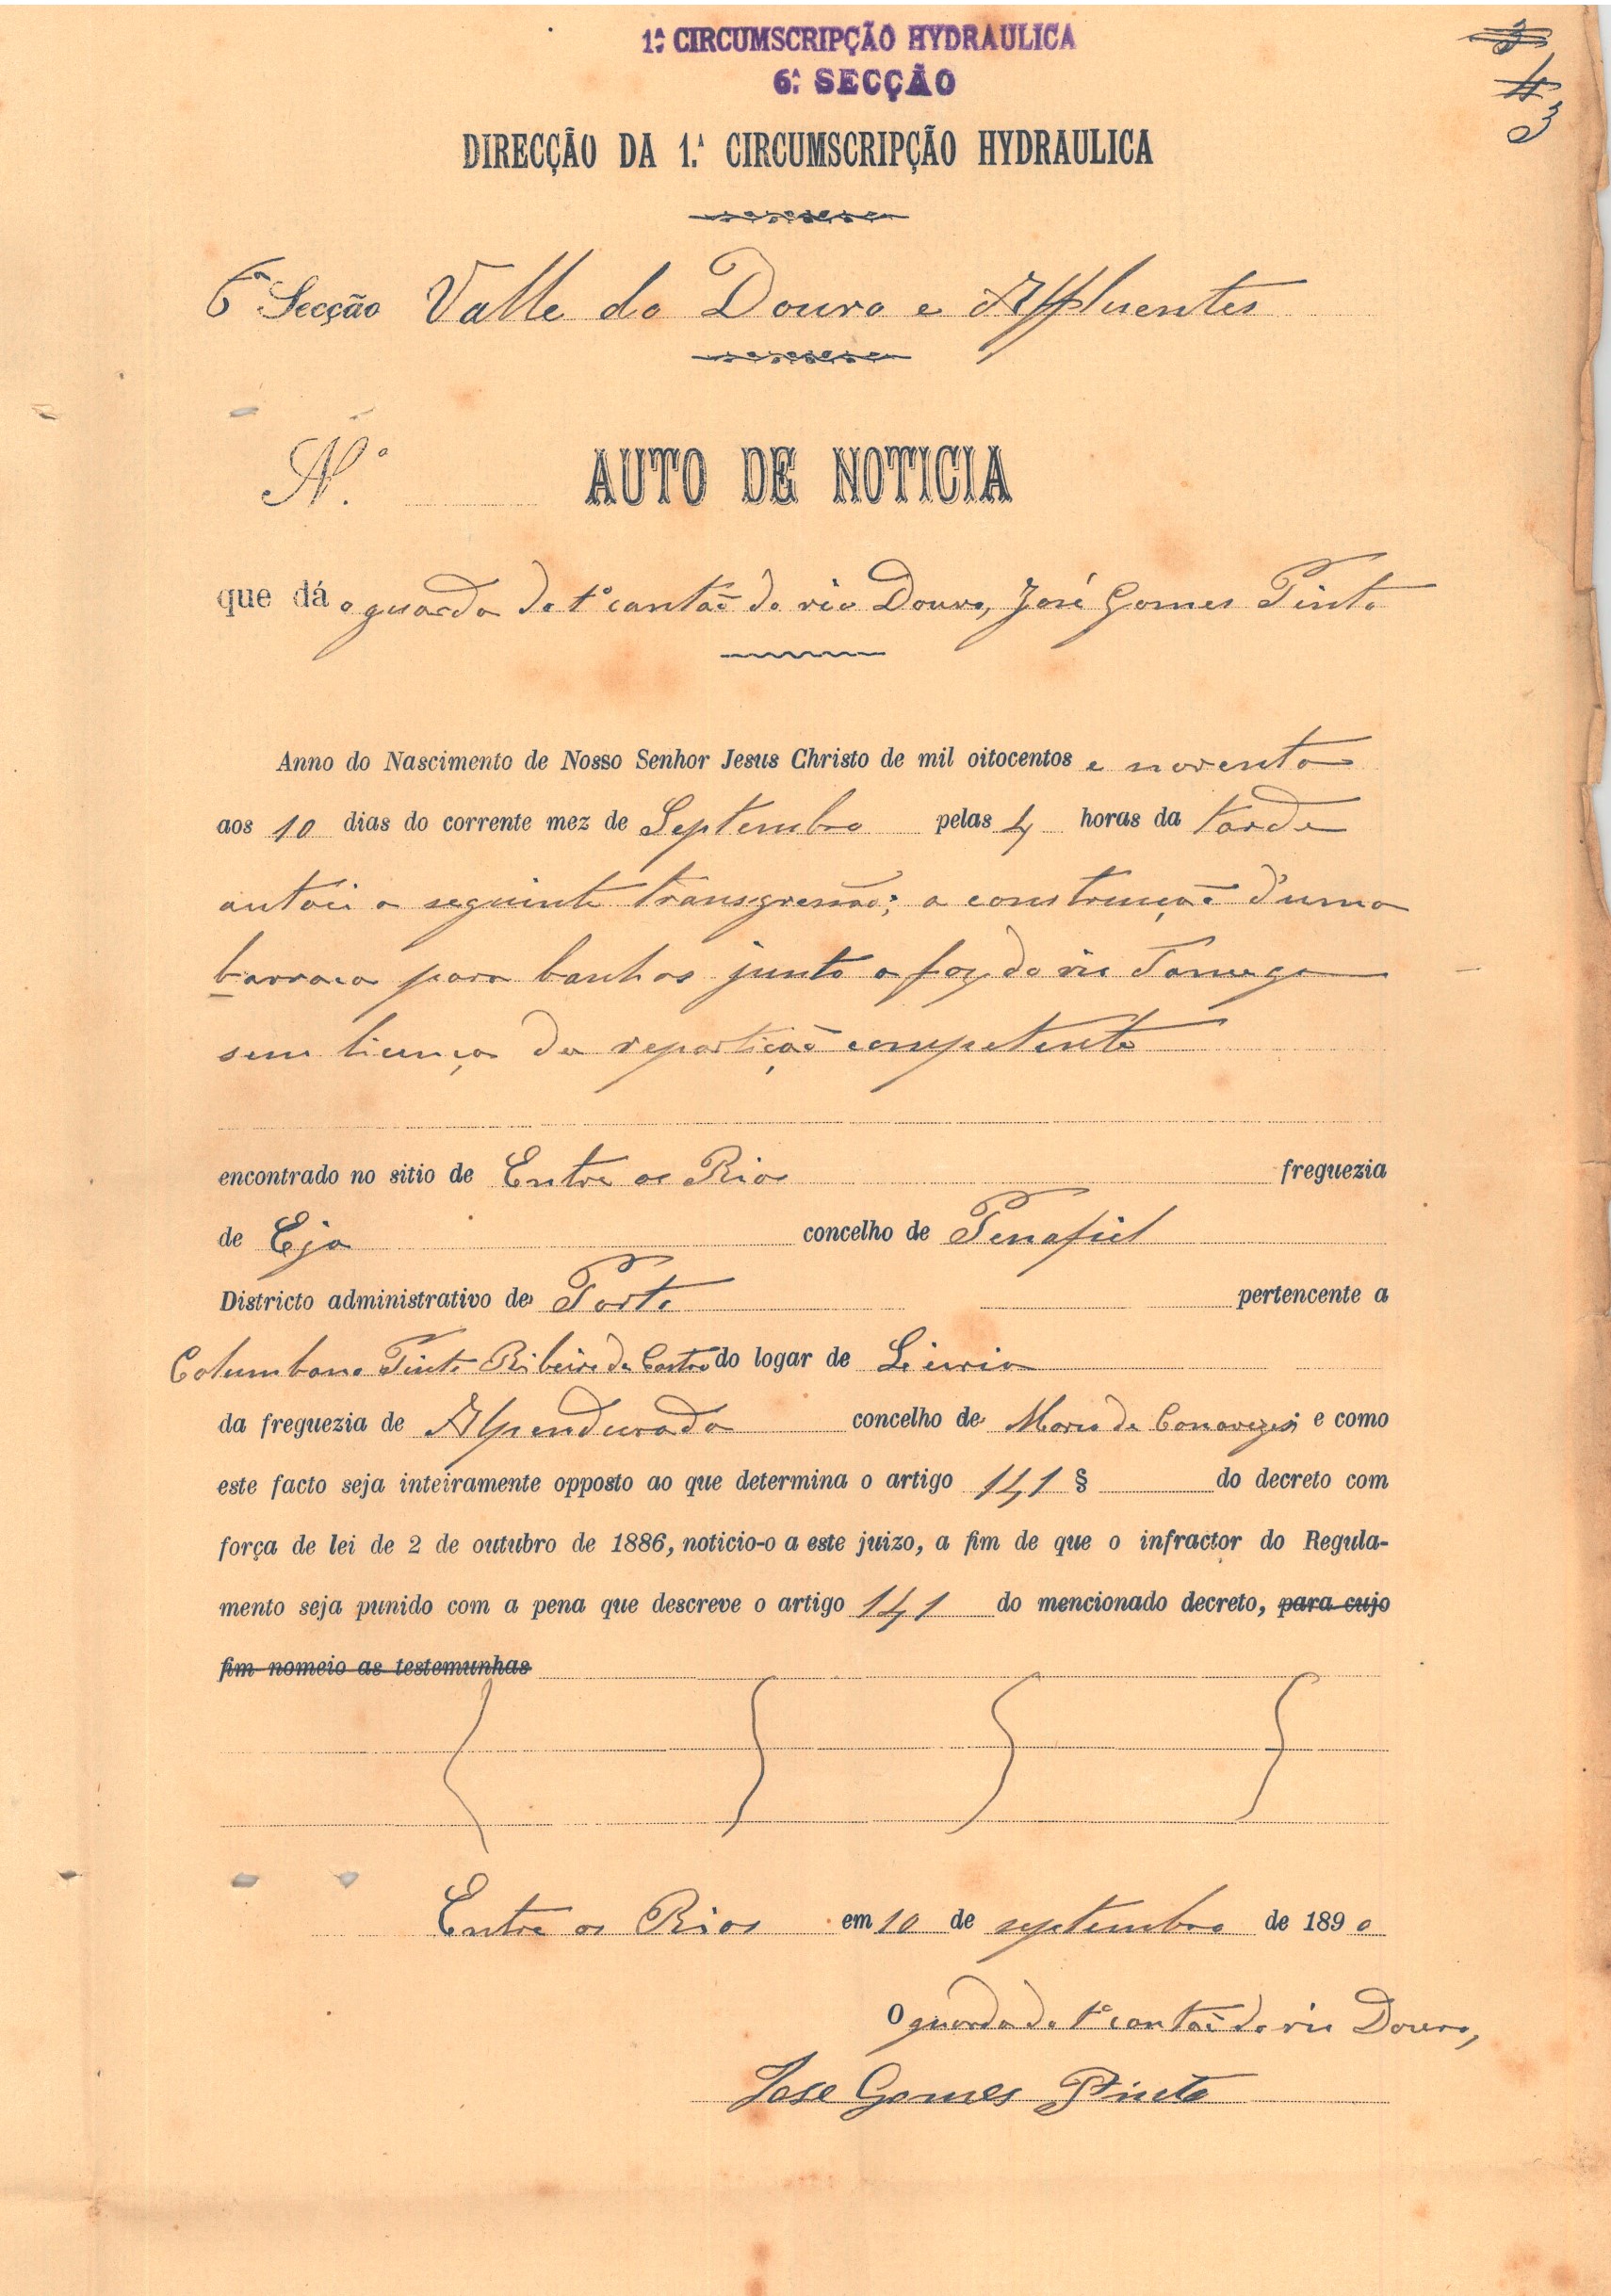 1.ª CIRCUMSCRIPÇÃO HYDRAULICA
6.ª SECÇÃO
3
4
3
DIRECÇÃO DA 1.ª CIRCUMSCRIPÇÃO HYDRAULICA
6ª Secção Valle do Douro e Affluentes
N.º AUTO DE NOTICIA
que dá o guarda do 1º cantão do rio Douro, José Gomes Pinto
Anno do Nascimento de Nosso Senhor Jesus Christo de mil oitocentos e noventa
aos 10 dias do corrente mez de Septembro pelas 4 horas da tarde
autoei a seguinte transgressão: a construcção d'uma
barraca para banhos junto a foz do rio Tamega
sem licença da repartição competente
encontrado no sitio de Entre os Rios freguezia
de Eja concelho de Penafiel
Districto administrativo de Porto pertencente a
Columbano Pinto Ribeiro de Castro do logar de
da freguezia de Alpendurada concelho de Marco de Canavezes e como
este facto seja inteiramente opposto ao que determina o artigo 141 § do decreto com
força de lei de 2 de outubro de 1886, noticio-o a este juizo, a fim de que o infractor do Regula-
mento seja punido com a pena que descreve o artigo 141 do mencionado decreto, para cujo
fim nomeio as testemunhas
Entre os Rios em 10 de septembro de 1890
O guarda do 1º cantão do rio Douro,
Jose Gomes Pinto